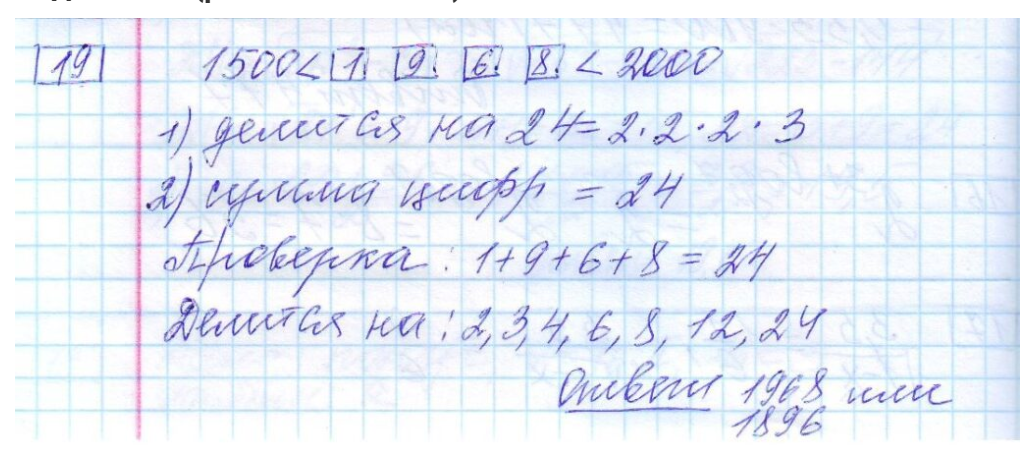 19 1500 < 1 9 6 8 < 2000
1) делится на 24 = 2·2·2·3
2) сумма цифр = 24
Проверка: 1+9+6+8 = 24
Делится на: 2, 3, 4, 6, 8, 12, 24
Ответ 1968 или
1896